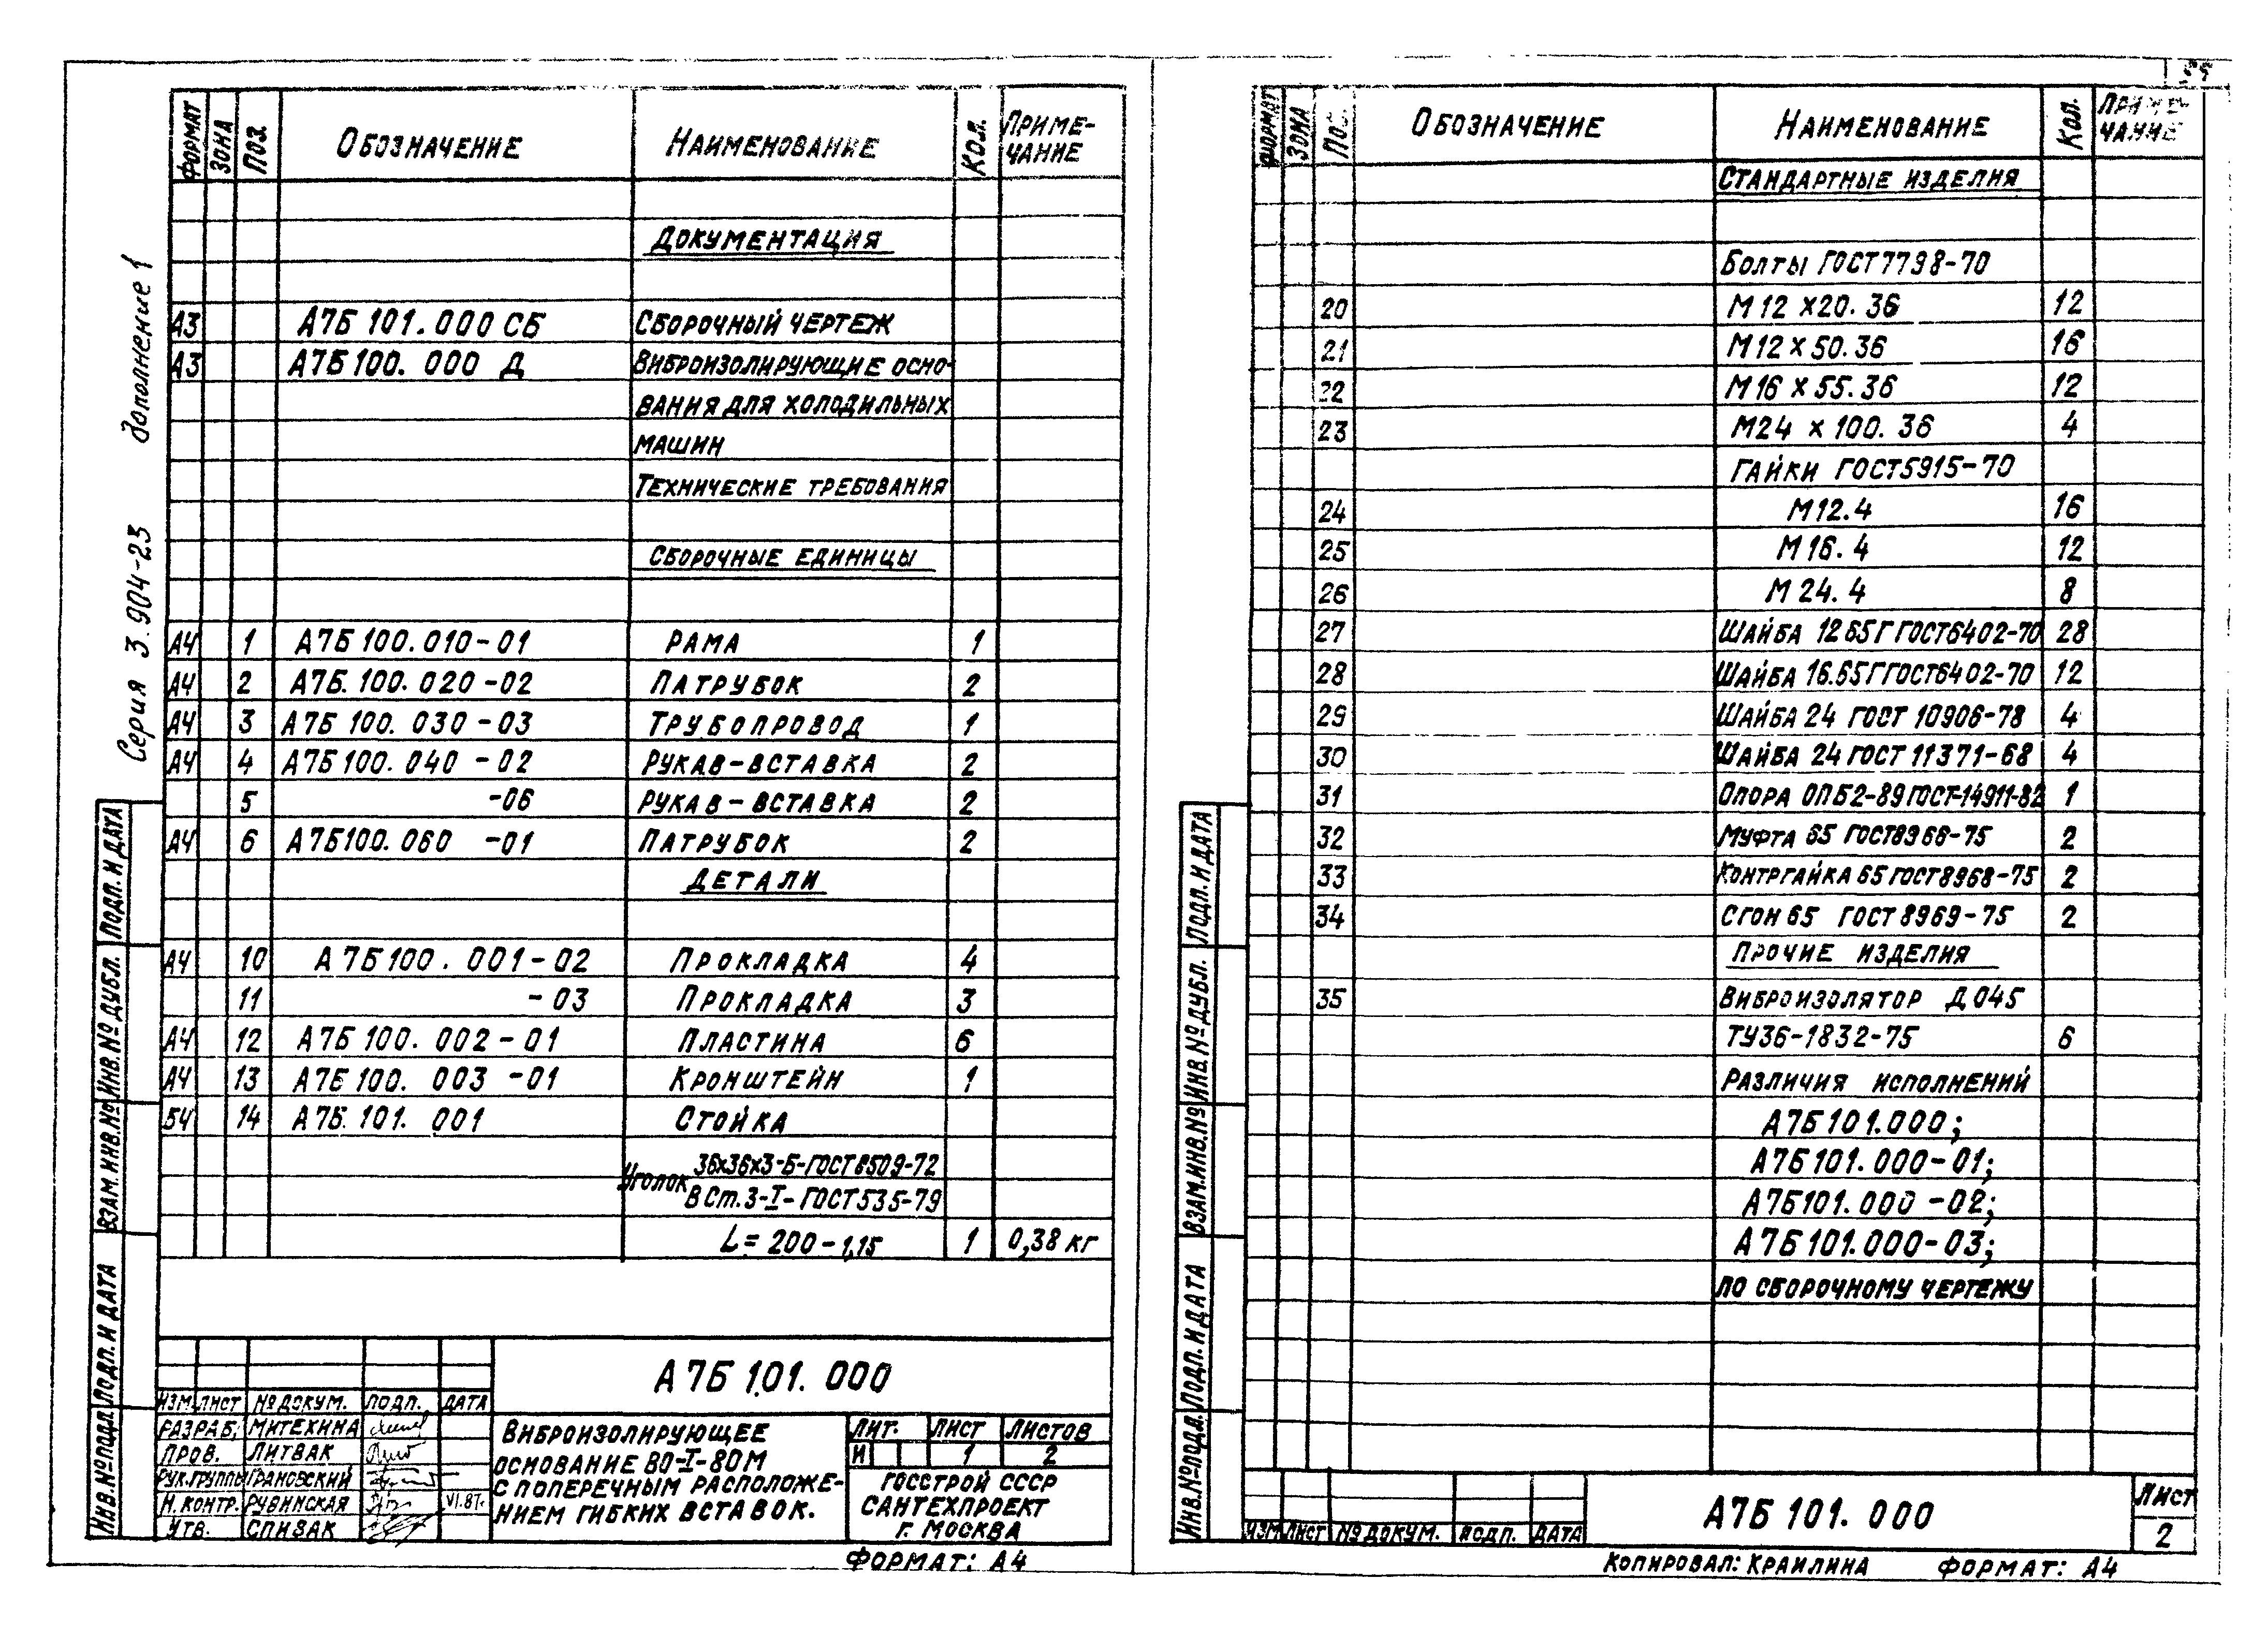 Серия 3.904-23 дополнение 1
ФОРМАТ ЗОНА ПОЗ. ОБОЗНАЧЕНИЕ НАИМЕНОВАНИЕ КОЛ. ПРИМЕ-
ЧАНИЕ
ДОКУМЕНТАЦИЯ
А3 А7Б 101.000 СБ СБОРОЧНЫЙ ЧЕРТЕЖ
А3 А7Б 100. 000 Д ВИБРОИЗОЛИРУЮЩИЕ ОСНО-
ВАНИЯ ДЛЯ ХОЛОДИЛЬНЫХ
МАШИН
ТЕХНИЧЕСКИЕ ТРЕБОВАНИЯ
СБОРОЧНЫЕ ЕДИНИЦЫ
А4 1 А7Б 100.010-01 РАМА 1
А4 2 А7Б. 100. 020-02 ПАТРУБОК 2
А4 3 А7Б 100. 030-03 ТРУБОПРОВОД 1
А4 4 А7Б 100. 040 -02 РУКАВ-ВСТАВКА 2
5 -06 РУКАВ-ВСТАВКА 2
А4 6 А7Б100. 060 -01 ПАТРУБОК 2
ДЕТАЛИ
А4 10 А7Б100. 001-02 ПРОКЛАДКА 4
11 -03 ПРОКЛАДКА 3
А4 12 А7Б 100. 002-01 ПЛАСТИНА 6
А4 13 А7Б 100. 003 -01 КРОНШТЕЙН 1
БЧ 14 А7Б. 101. 001 СТОЙКА
УГОЛОК 36х36х3-Б-ГОСТ 8509-72
В Ст.3-I-ГОСТ 535-79
L= 200-1,15 1 0,38 кг
А7Б 101. 000
ИЗМ. ЛИСТ № ДОКУМ. ПОДП. ДАТА
РАЗРАБ. МИТЕХИНА
ПРОВ. ЛИТВАК
РУК.ГРУППЫ ГРАНОВСКИЙ
Н. КОНТР. РУБИНСКАЯ VI.87г.
УТВ. СПИВАК
ВИБРОИЗОЛИРУЮЩЕЕ
ОСНОВАНИЕ ВО-I-80М
С ПОПЕРЕЧНЫМ РАСПОЛОЖЕ-
НИЕМ ГИБКИХ ВСТАВОК.
ЛИТ. ЛИСТ ЛИСТОВ
И 1 2
ГОССТРОЙ СССР
САНТЕХПРОЕКТ
Г. МОСКВА
ФОРМАТ: А4
ИНВ.№ПОДЛ. ПОДП. И ДАТА ВЗАМ.ИНВ.№ ИНВ.№ ДУБЛ. ПОДП. И ДАТА
ФОРМАТ ЗОНА ПОЗ. ОБОЗНАЧЕНИЕ НАИМЕНОВАНИЕ КОЛ. ПРИМЕ-
ЧАНИЕ
СТАНДАРТНЫЕ ИЗДЕЛИЯ
БОЛТЫ ГОСТ 7798-70
20 М12 х20. 36 12
21 М12 х 50. 36 16
22 М16 х 55. 36 12
23 М24 х 100. 36 4
ГАЙКИ ГОСТ5915-70
24 М12.4 16
25 М16. 4 12
26 М 24. 4 8
27 ШАЙБА 12 65Г ГОСТ6402-70 28
28 ШАЙБА 16.65Г ГОСТ6402-70 12
29 ШАЙБА 24 ГОСТ 10906-78 4
30 ШАЙБА 24 ГОСТ 11371-68 4
31 ОПОРА ОПБ2-89 ГОСТ-14911-82 1
32 МУФТА 65 ГОСТ8966-75 2
33 КОНТРГАЙКА 65 ГОСТ8968-75 2
34 СГОН 65 ГОСТ 8969-75 2
ПРОЧИЕ ИЗДЕЛИЯ
35 ВИБРОИЗОЛЯТОР ДО45
ТУ36-1832-75 6
РАЗЛИЧИЯ ИСПОЛНЕНИЙ
А7Б 101.000;
А7Б 101. 000-01;
А7Б101. 000 -02;
А7Б 101.000-03;
ПО СБОРОЧНОМУ ЧЕРТЕЖУ
ИНВ.№ПОДЛ. ПОДП. И ДАТА ВЗАМ.ИНВ.№ ИНВ.№ ДУБЛ. ПОДП. И ДАТА
ИЗМ ЛИСТ № ДОКУМ. ПОДП. ДАТА
А7Б 101. 000
ЛИСТ
2
КОПИРОВАЛ: КРАИЛИНА ФОРМАТ: А4